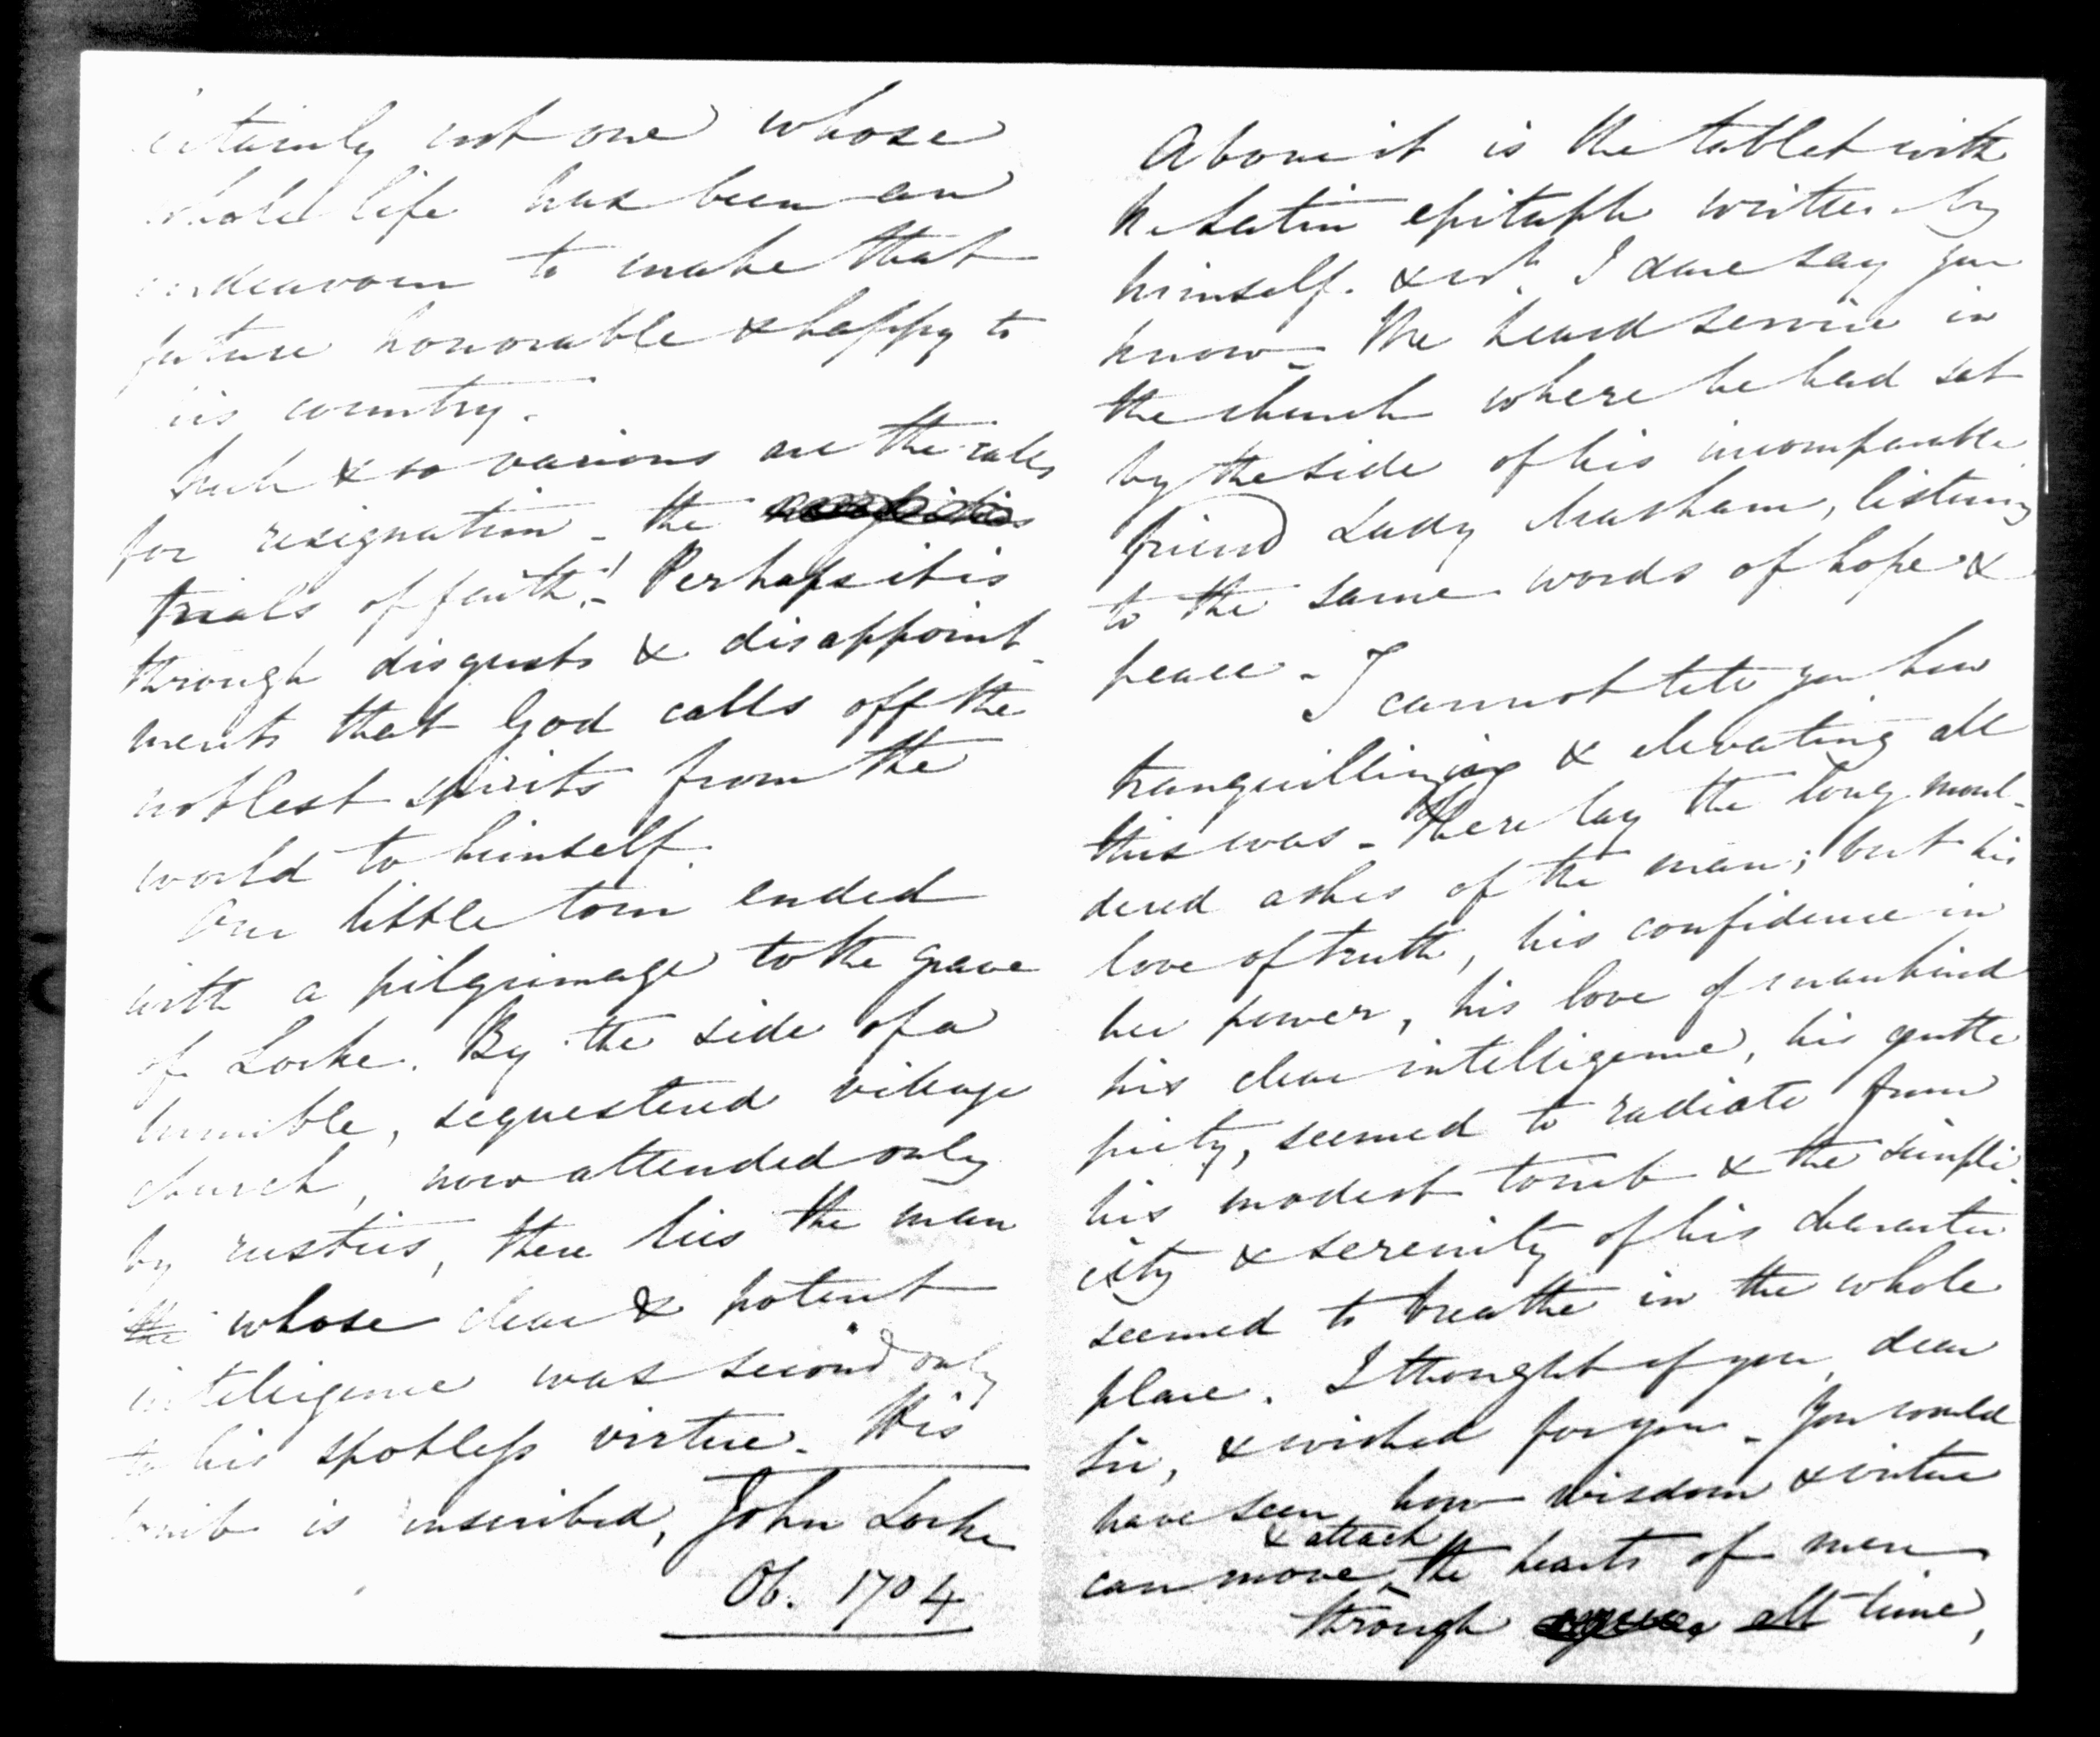 certainly not one whose
whole life has been an
endeavour to make that
future honorable & happy to
his country.
Such & so various are the calls
for resignation – the
trials of faith! – Perhaps it is
through disgusts & disappoint-
ments that God calls off the
noblest spirits from the
world to himself.
Our little tour ended
with a pilgrimage to the grave
of Locke. By the side of a
humble, sequestered village
church, now attended only
by rustics, there lies the man
the whose clear & potent
intelligence was second only
to his spotless virtue. His
tomb is inscribed, John Locke
Ob. 1704
Above it is the tablet with
he Latin epitaph written by
himself. & wh. I dare say you
know – We heard service in
the church where he had sat
by the side of his incomparable
friend Lady Masham, listening
to the same words of hope &
peace – I cannot tell you how
tranquillizing & elevating all
this was – There lay the long moul-
dered ashes of the man; but his
love of truth, his confidence in
her power, his love of mankind
his clear intelligence, his gentle
piety, seemed to radiate from
his modest tomb & the simpli-
city & serenity of his character
seemed to breathe in the whole
place. I thought of you, dear
Sir, & wished for you – You would
have seen how wisdom & virtue
can move & attach the hearts of men
through all time,